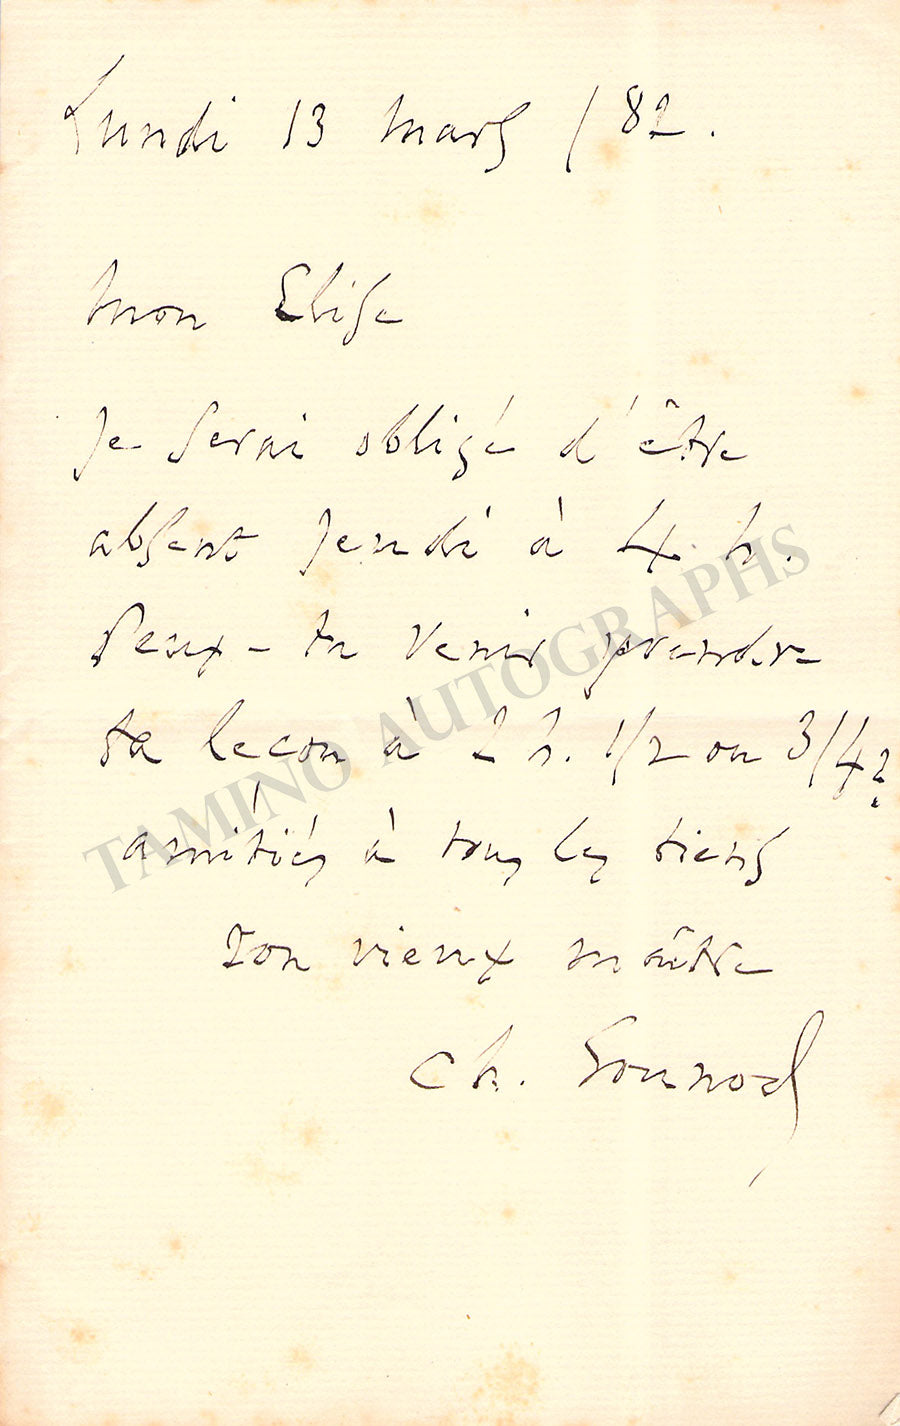 Lundi 13 mars / 82.
Mon Elise
Je serai obligé d'être
absent Jeudi à 4 h.
Peux-tu venir prendre
ta leçon à 2 h. 1/2 ou 3/4?
amitiés à tous les tiens
Ton vieux maître
Ch. Gounod
TAMINO AUTOGRAPHS